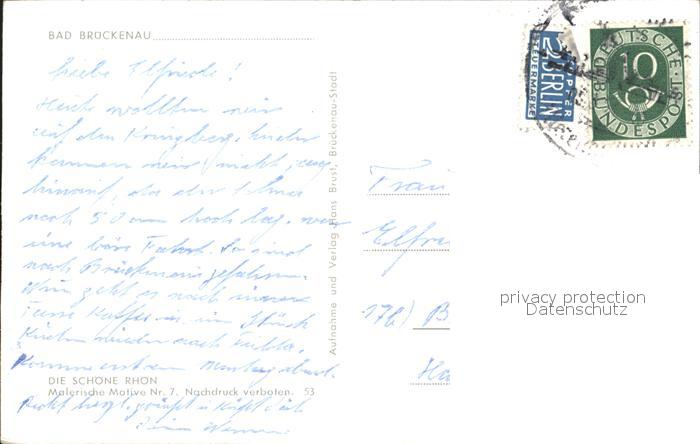 BAD BRÜCKENAU
Liebe Elfriede!
Heute wollten wir
auf den Kreuzberg, leider
kommen wir nicht ganz
hinauf, da der Schnee
noch 50 cm hoch lag, war
eine böse Fahrt. So sind
nach Brückenau gefahren.
Nun geht es nach einer
Tasse Kaffee u. ein Stück
Kuchen wieder nach Fulda.
Komme erst am Montag abend.
DIE SCHÖNE RHÖN
Malerische Motive Nr. 7. Nachdruck verboten. 53
Recht herzl. grüßt u. küßt dich
Dein Werner
Aufnahme und Verlag Hans Brust, Brückenau-Stadt
2
NOTOPFER
BERLIN
STEUERMARKE
DEUTSCHE
BUNDESPOST
10
Frau
Elfri
17b) B
privacy protection
Datenschutz